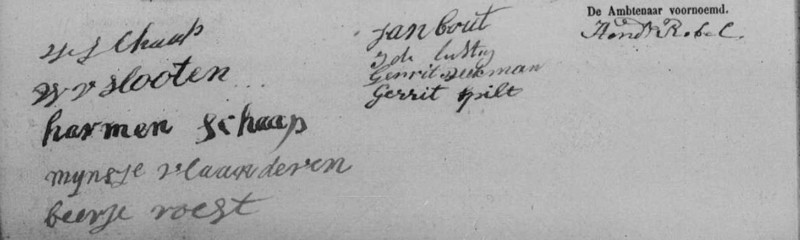 Schaap
W v slooten
harmen schaap
mynsje vlaanderen
beerje roest
Jan bout
Gerrit
Gerrit spilt
De Ambtenaar voornoemd.
Hendk Robel.